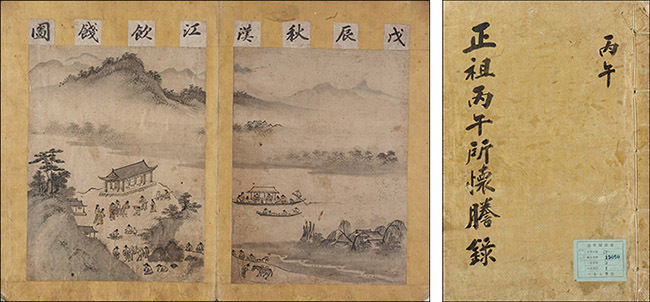 戊辰秋漢江飮餞圖
丙午
正祖丙午所懷謄錄
15050